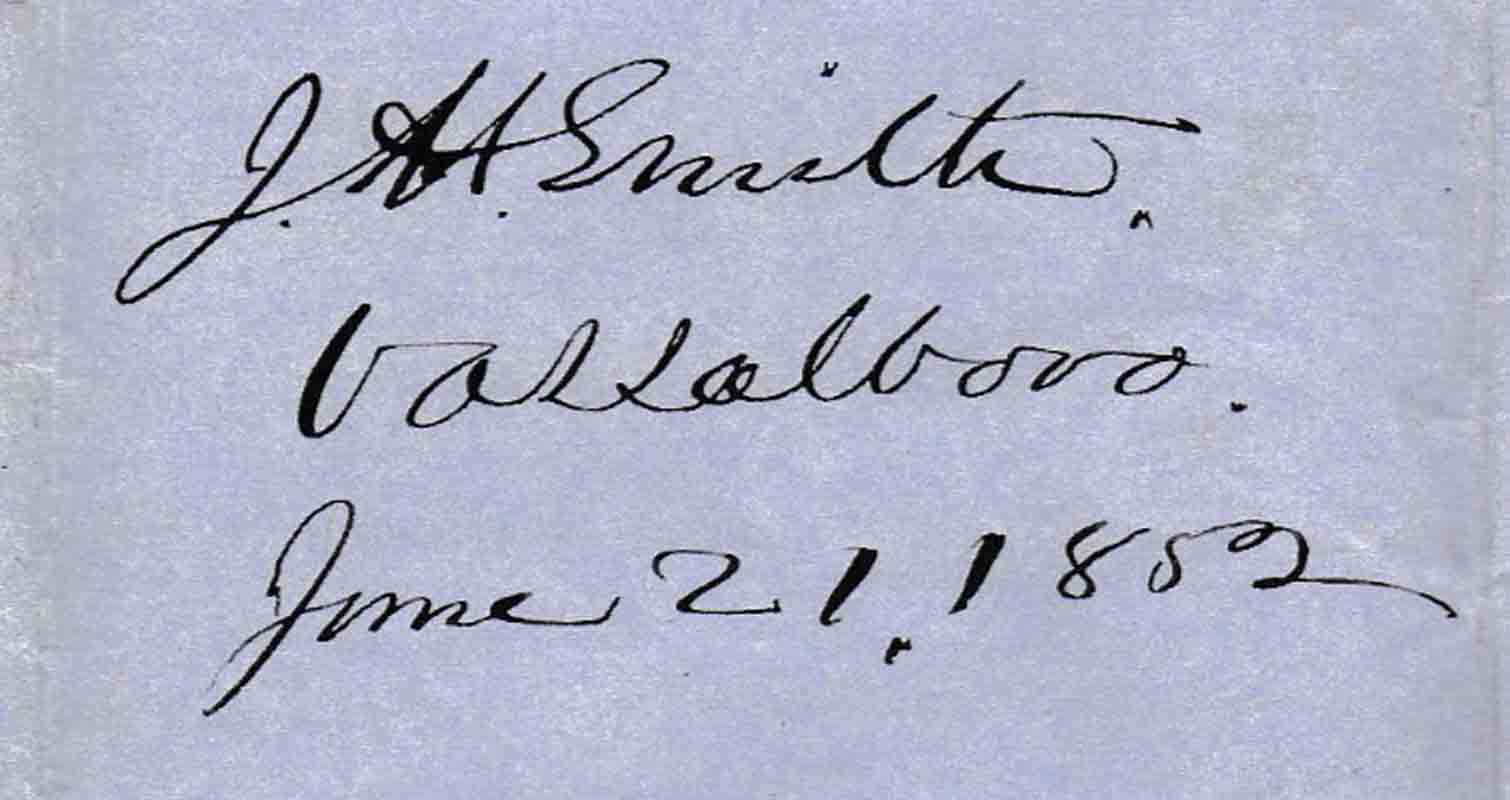 J. H. Smith.
Vassalboro.
June 21, 1852